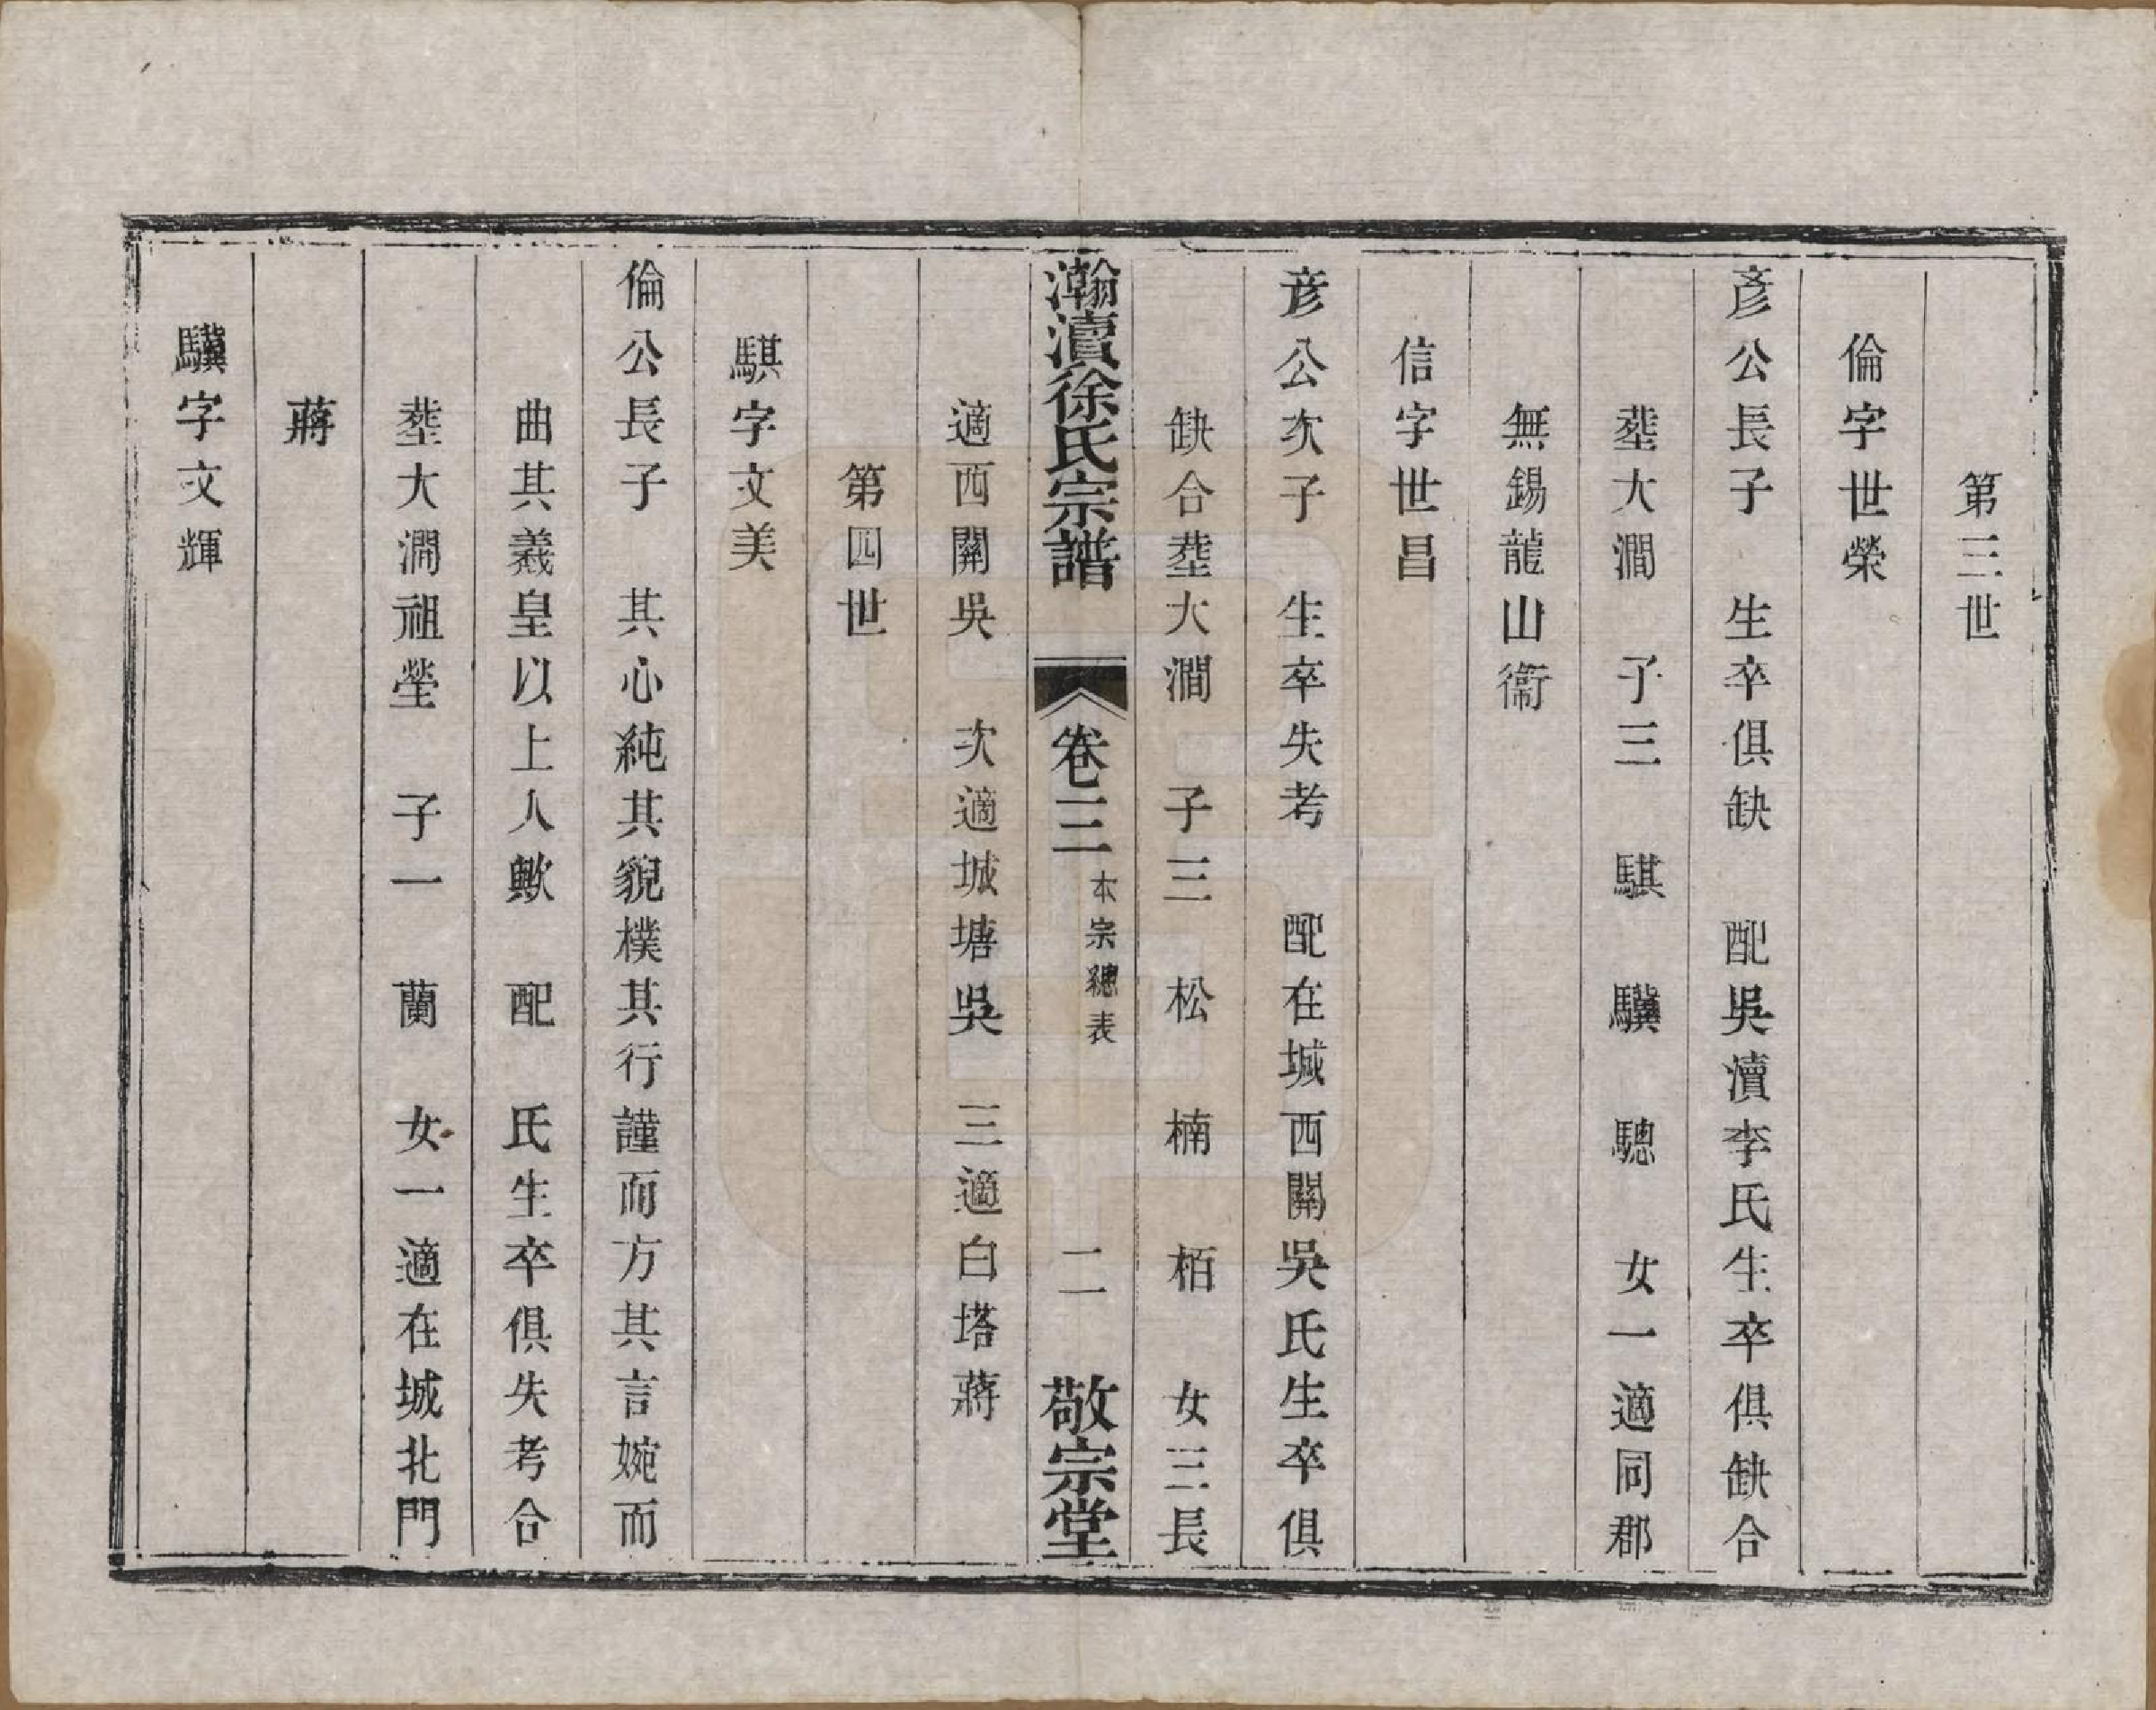 第三世
倫字世榮
彥公長子　生卒俱缺　配吳瀆李氏生卒俱缺合
塟大澗　子三　騏　驥　驄　女一適同郡
無錫龍山衞
信字世昌
彥公次子　生卒失考　配在城西關吳氏生卒俱
缺合塟大澗　子三　松　楠　栢　女三長
瀚瀆徐氏宗譜　卷三　本宗總表　二　敬宗堂
適西關吳　次適城塘吳　三適白塔蔣
第四世
騏字文美
倫公長子　其心純其貌樸其行謹而方其言婉而
曲其羲皇以上人歟　配　氏生卒俱失考合
塟大澗祖塋　子一　蘭　女一適在城北門
蔣
驥字文輝